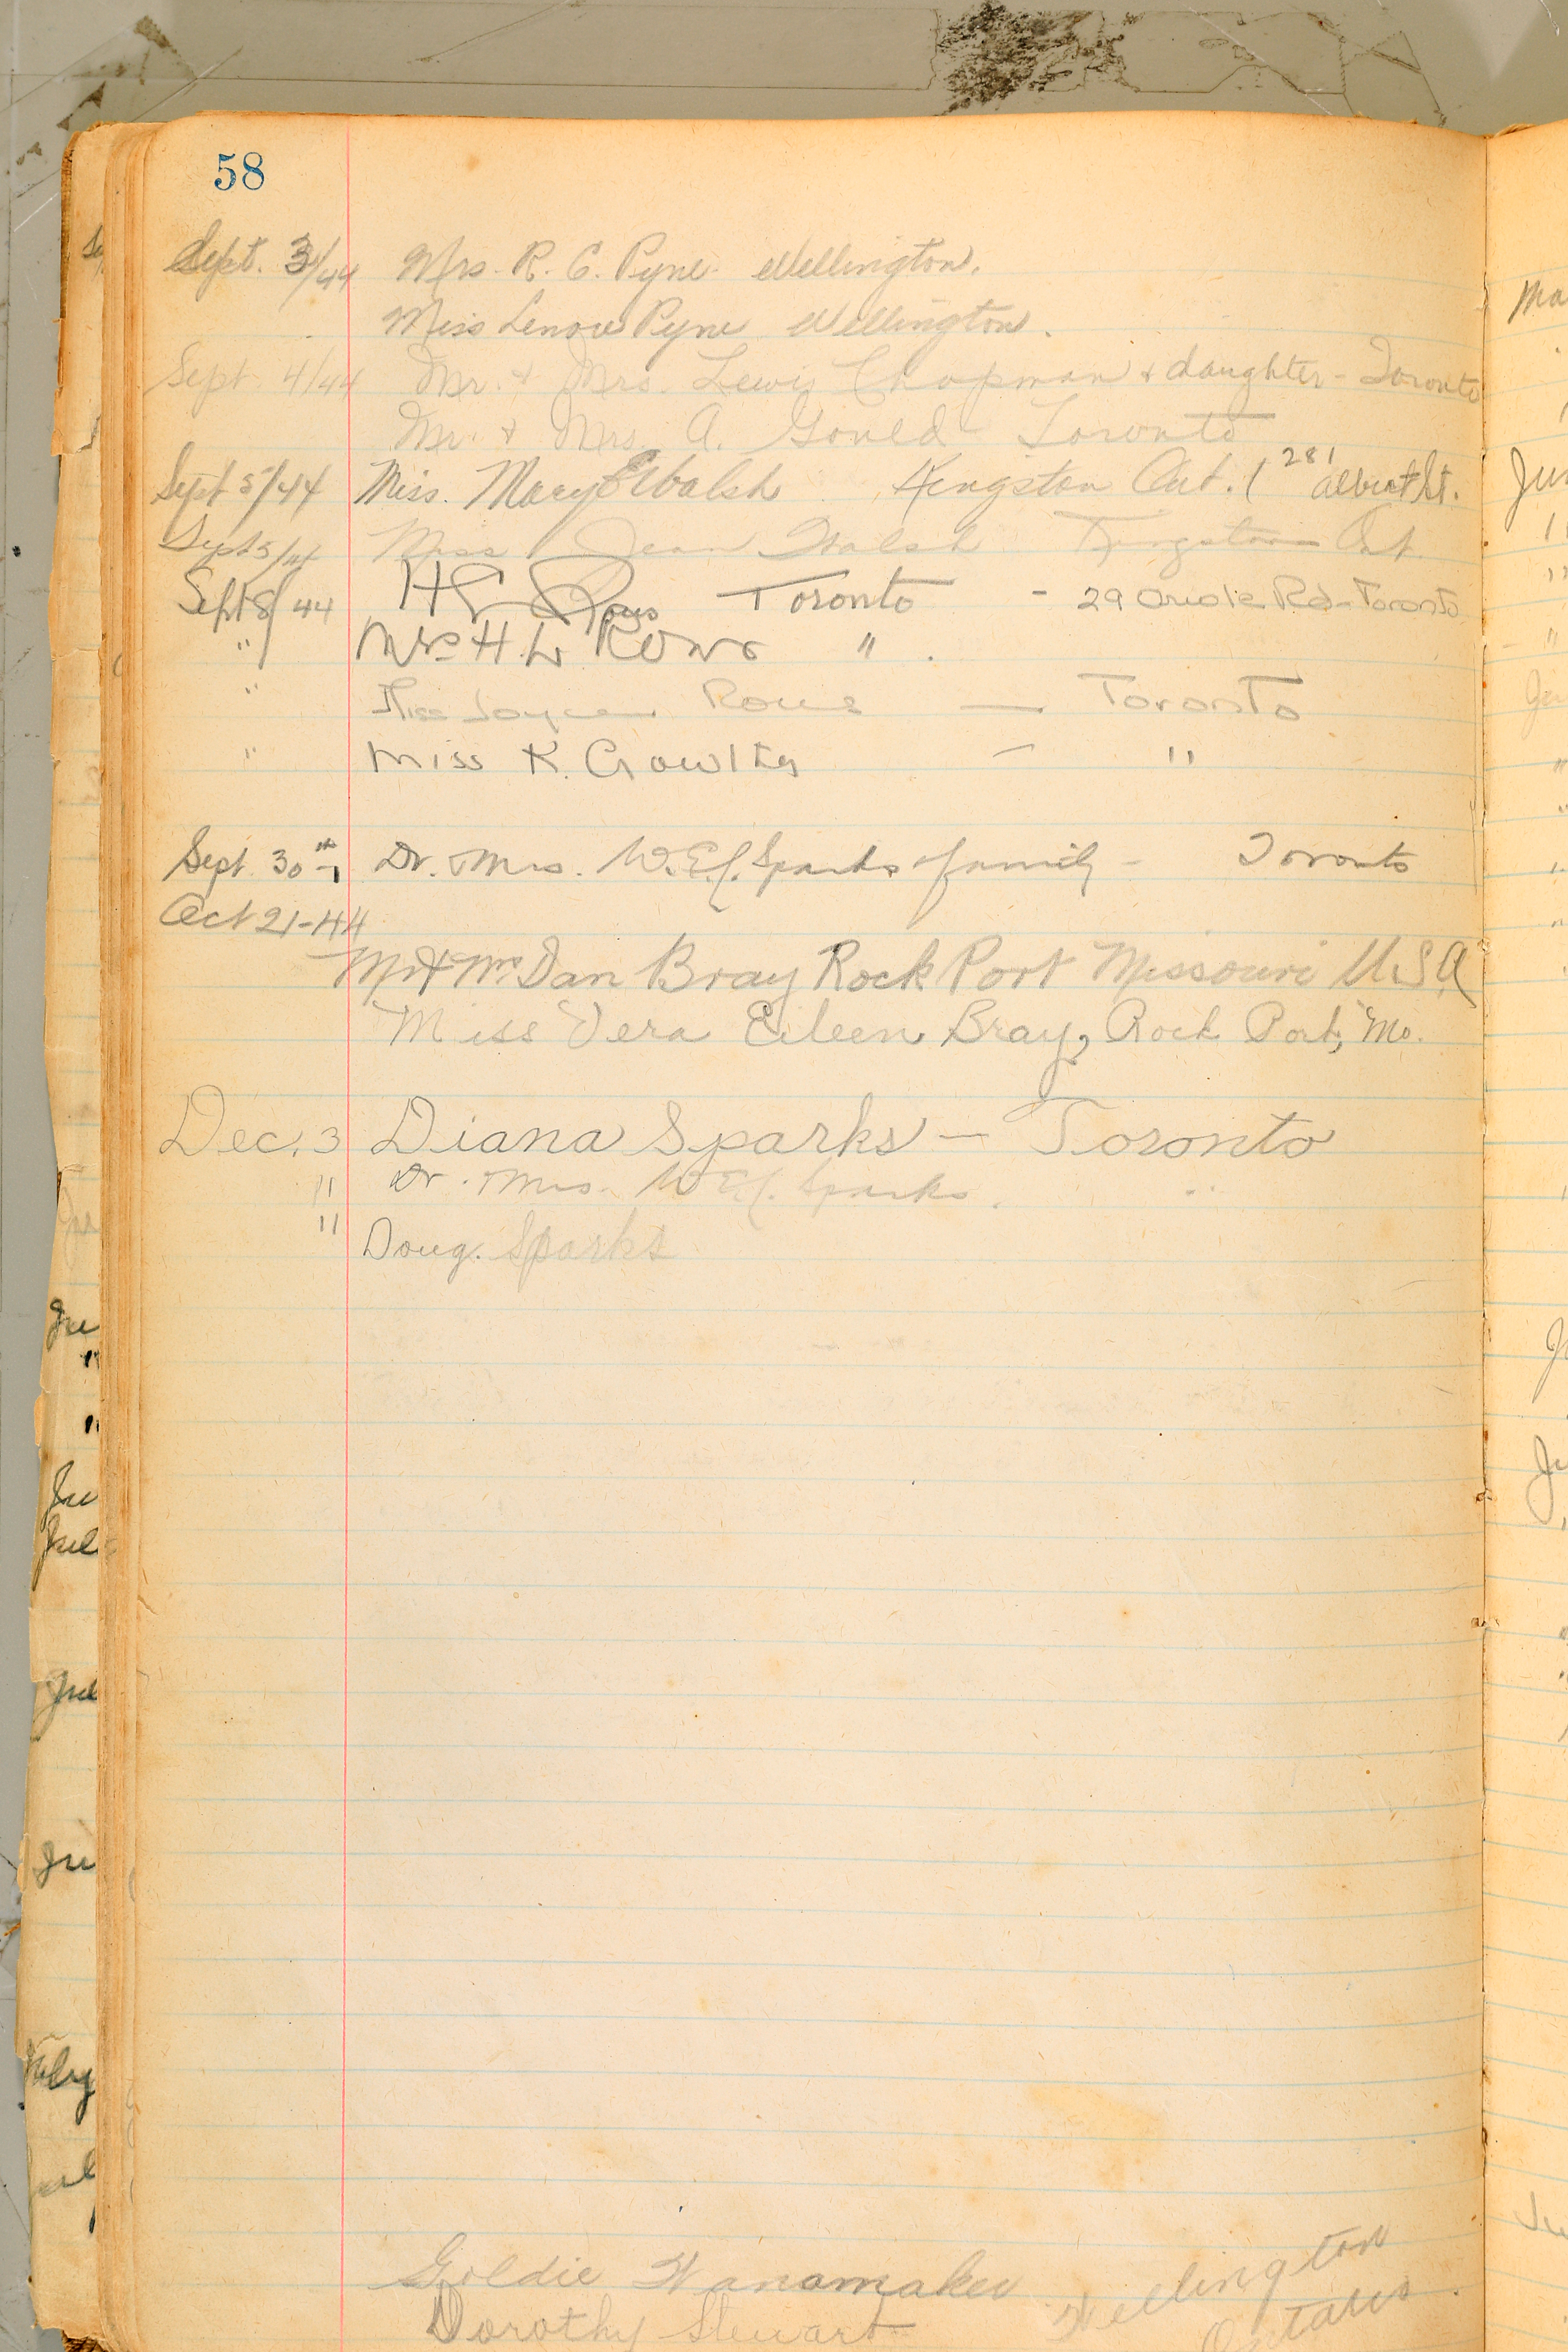 58
Sept. 3/44 Mrs. R. C. Pyne. Wellington.
Miss Lenore Pyne Wellington.
Sept. 4/44 Mr. & Mrs. Lewis Chapman & daughter - Toronto
Mr. & Mrs. A. Gould - Toronto
Sept 5/44 Miss. Mary E Walsh Kingston Ont. ( 281 Albert St.
Sept 5/44 Miss Jean Walsh Kingston Ont.
Sept 8/44 H Rous Toronto - 29 Oriole Rd - Toronto
" Mrs H. L. Rous " .
" Miss Joyce Rous — Toronto
" Miss K. — "
Sept. 30th Dr. & Mrs. W. E. Sparks & family - Toronto
Oct 21-44
Mr & Mrs Dan Bray Rock Port Missouri U.S.A
Miss Vera Eileen Bray, Rock Port, Mo.
Dec. 3 Diana Sparks — Toronto
" Dr. & Mrs. W E Sparks. "
" Doug. Sparks
Goldie Wanamaker Wellington
Dorothy Stewart Ontario